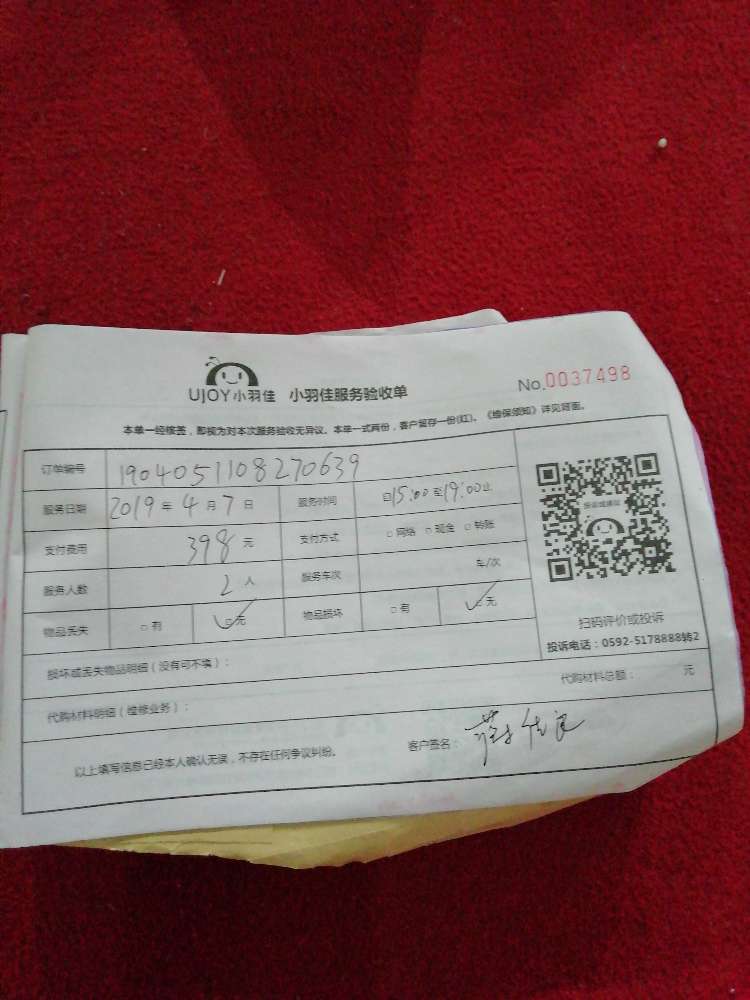 UJOY小羽佳 小羽佳服务验收单 No.0037498
本单一经核签，即视为对本次服务验收无异议。本单一式两份，客户留存一份(红)。《维保须知》详见背面。
订单编号 1904051108270639
服务日期 2019年4月7日 服务时间 自15:00至19:00止
支付费用 398元 支付方式 □网络 □现金 □转账
服务人数 2人 服务车次 车/次
物品丢失 □有 □无 物品损坏 □有 □无
扫码评价或投诉
投诉电话：0592-5178888转2
损坏或丢失物品明细（没有可不填）：
代购材料明细（维修业务）： 代购材料总额： 元
以上填写信息已经本人确认无误，不存在任何争议纠纷。 客户签名：